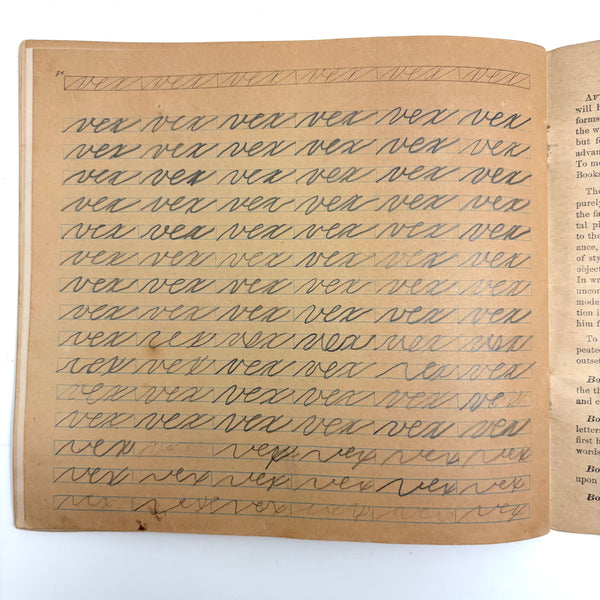 vex vex vex vex vex vex
vex vex vex vex vex vex
vex vex vex vex vex vex
vex vex vex vex vex vex
vex vex vex vex vex vex
vex vex vex vex vex vex
vex vex vex vex vex vex
vex vex vex vex vex vex
vex vex vex vex vex vex
vex vex vex vex vex vex
vex vex vex vex vex vex
vex vex vex vex vex vex
vex vex vex vex vex vex
vex vex vex vex vex
vex vex vex vex vex vex
vex vex vex vex vex vex
will
the
but
To
Books
The
purely
the
tal
to the
ance,
of
object
In
tion
him
To
the
and
letter
first
words
upon